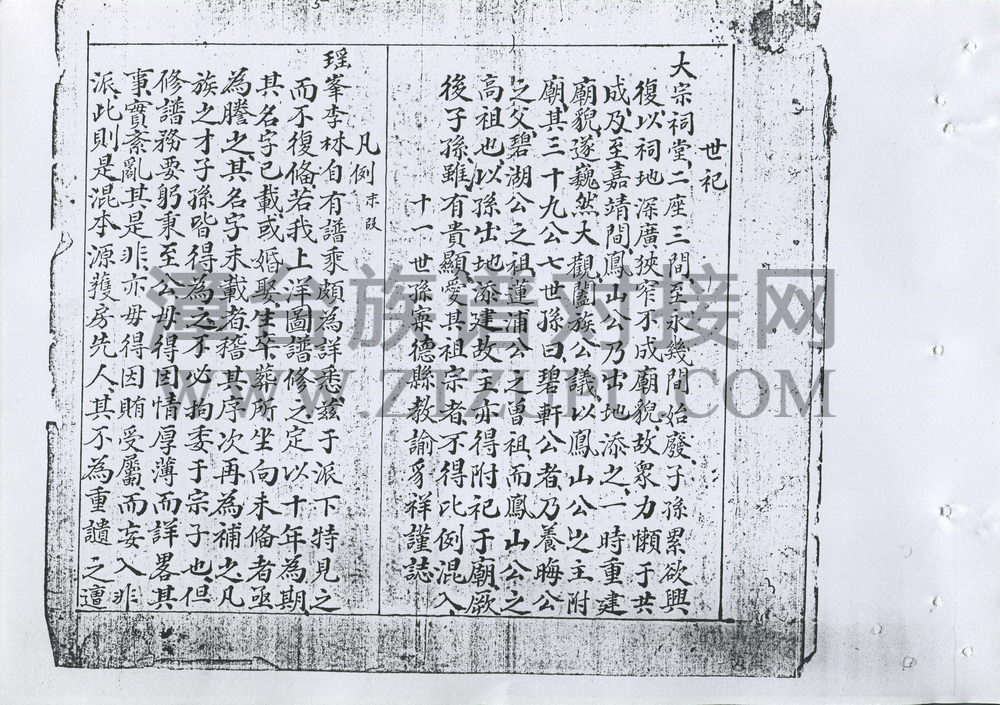 世祀
大宗祠堂二座三間至永幾間始廢子孫累欲興
復以祠地深廣狹窄不成廟貌故衆力懶于共
成及至嘉靖間鳳山公乃出地添之一時重建
廟貌遂巍然大觀闔族公議以鳳山公之主附
廟其三十九公七世孫曰碧軒公者乃養晦公
之父碧湖公之祖蓮浦公之曾祖而鳳山公之
高祖也以孫出地添建故主亦得附祀于廟厥
後子孫雖有貴顯愛其祖宗者不得比例混入
十一世孫寧德縣教諭爭祥謹誌
凡例
瑶峯李林自有譜乘頗為詳悉茲于派下特見之
而不復俻若我上洋圖譜修之定以十年為期
其名字已載或婚娶生卒葬所坐向未俻者亟
為謄之其名字未載者稽其序次再為補之凡
族之才子孫皆得為之不必拘委于宗子也但
修譜務要躬秉至公毋得因情厚薄而詳畧其
事實紊亂其是非亦毋得因賄受屬而妄入非
派此則是混本源䕶房先人其不為重譴之
漳台族谱对接网
WWW.ZTZUPU.COM